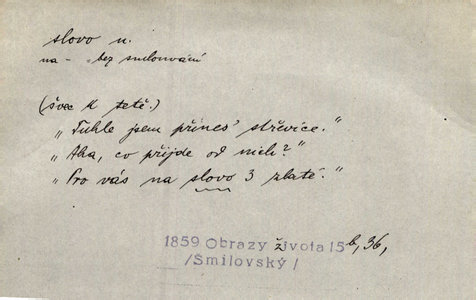 slovo n.
na - bez smlouvání
(švec k tetě:)
"Tuhle jsem přines' střevíce."
"Aha, co přijde od nich?"
"Pro vás na slovo 3 zlaté."
1859 Obrazy života 15 b, 36,
/Smilovský/